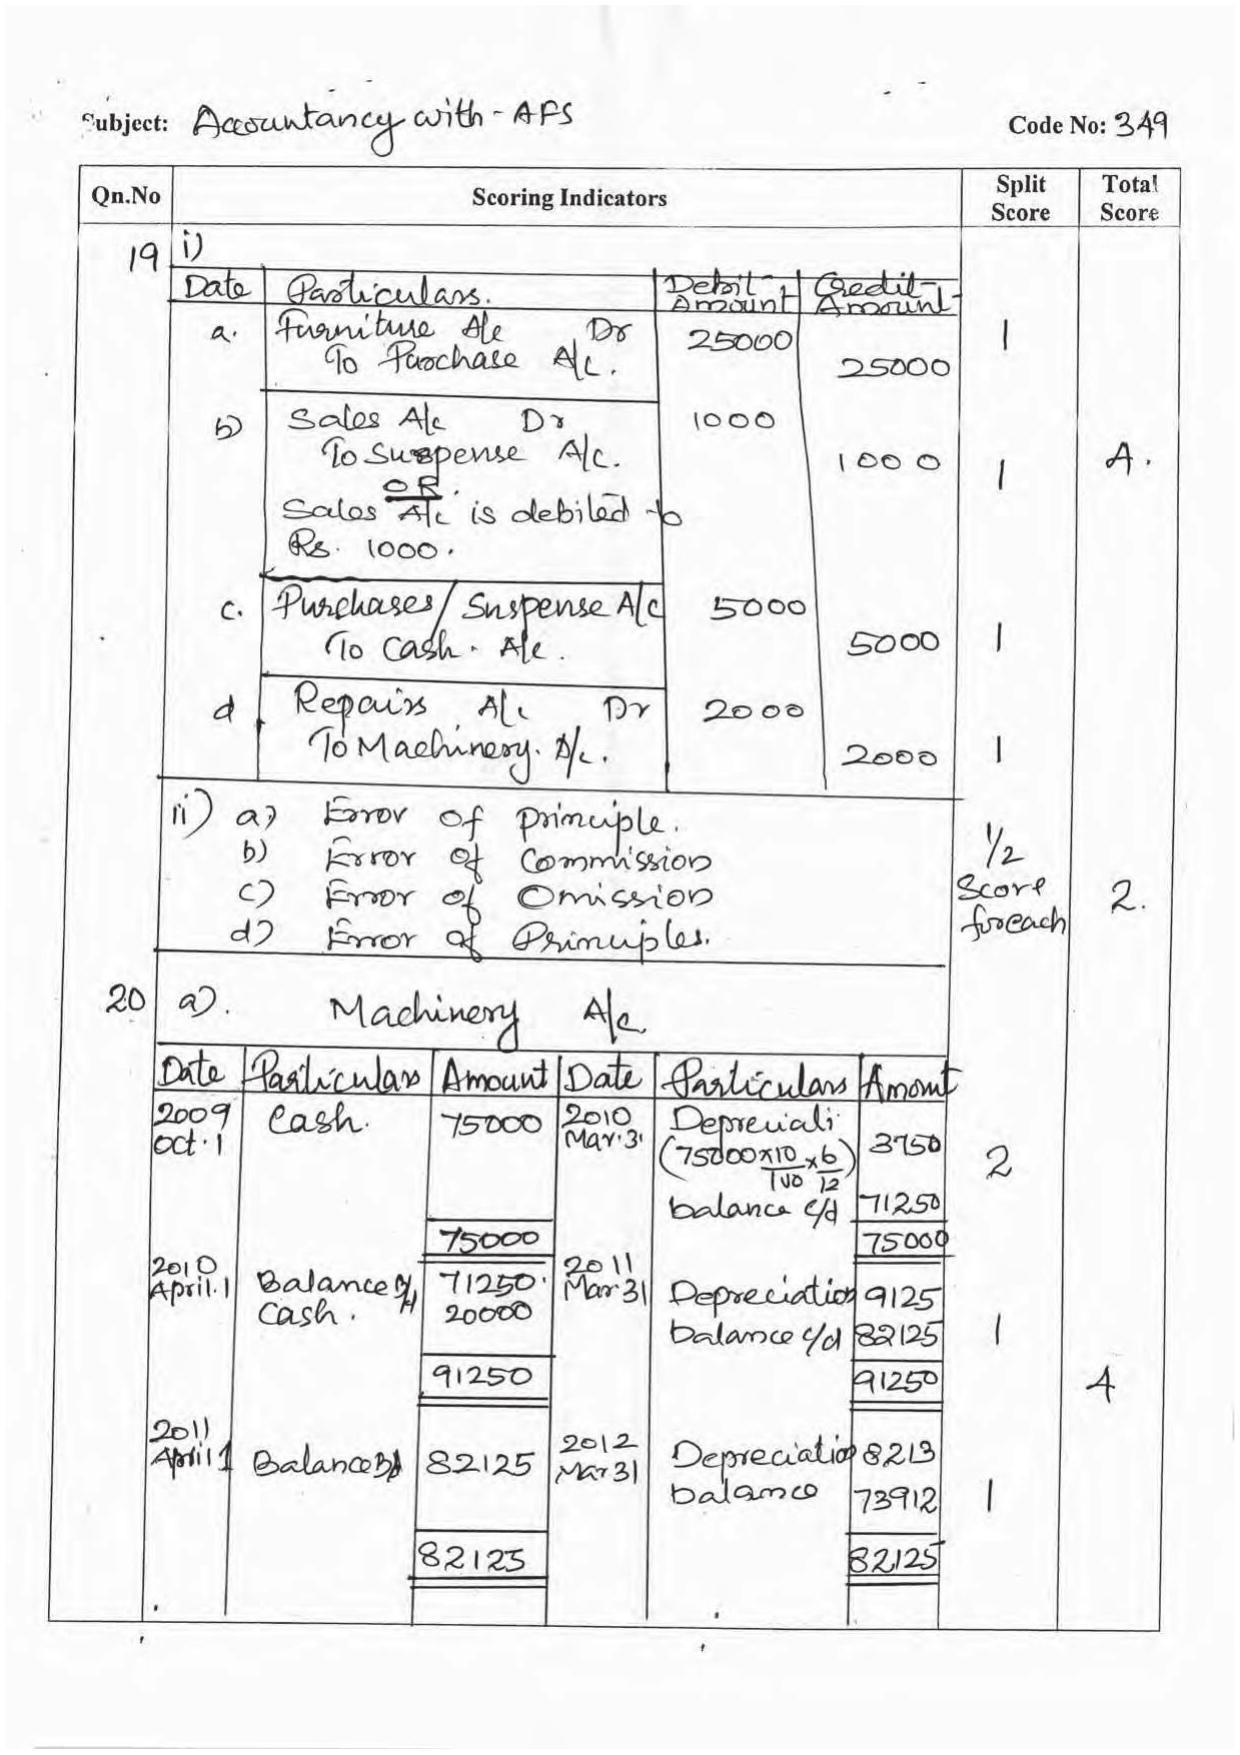 Subject: Accountancy with - AFS
Code No: 349
Qn.No Scoring Indicators Split Score Total Score
19 i)
Date Particulars. Debit Amount Credit Amount
a. Furniture A/c Dr 25000 1
To Purchase A/c. 25000
b) Sales A/c Dr 1000
To Suspense A/c. 1000 1 4.
OR.
Sales A/c is debited to
Rs. 1000.
c. Purchases/Suspense A/c 5000
To Cash. A/c. 5000 1
d Repairs A/c Dr 2000
To Machinery. A/c. 2000 1
ii) a) Error of principle.
b) Error of Commission 1/2
c) Error of Omission Score 2.
d) Error of Principles. foreach
20 a). Machinery A/c
Date Particulars Amount Date Particulars Amount
2009 Cash. 75000 2010 Depreciati
Oct.1 Mar.31 (75000x10/100 x 6/12) 3750 2
balance c/d 71250
75000 75000
2010 2011
April.1 Balance b/d 71250. Mar31 Depreciation 9125
Cash. 20000 balance c/d 82125 1
91250 91250 4
2011 2012
April 1 Balance b/d 82125 Mar31 Depreciatio 8213
balance 73912 1
82125 82125